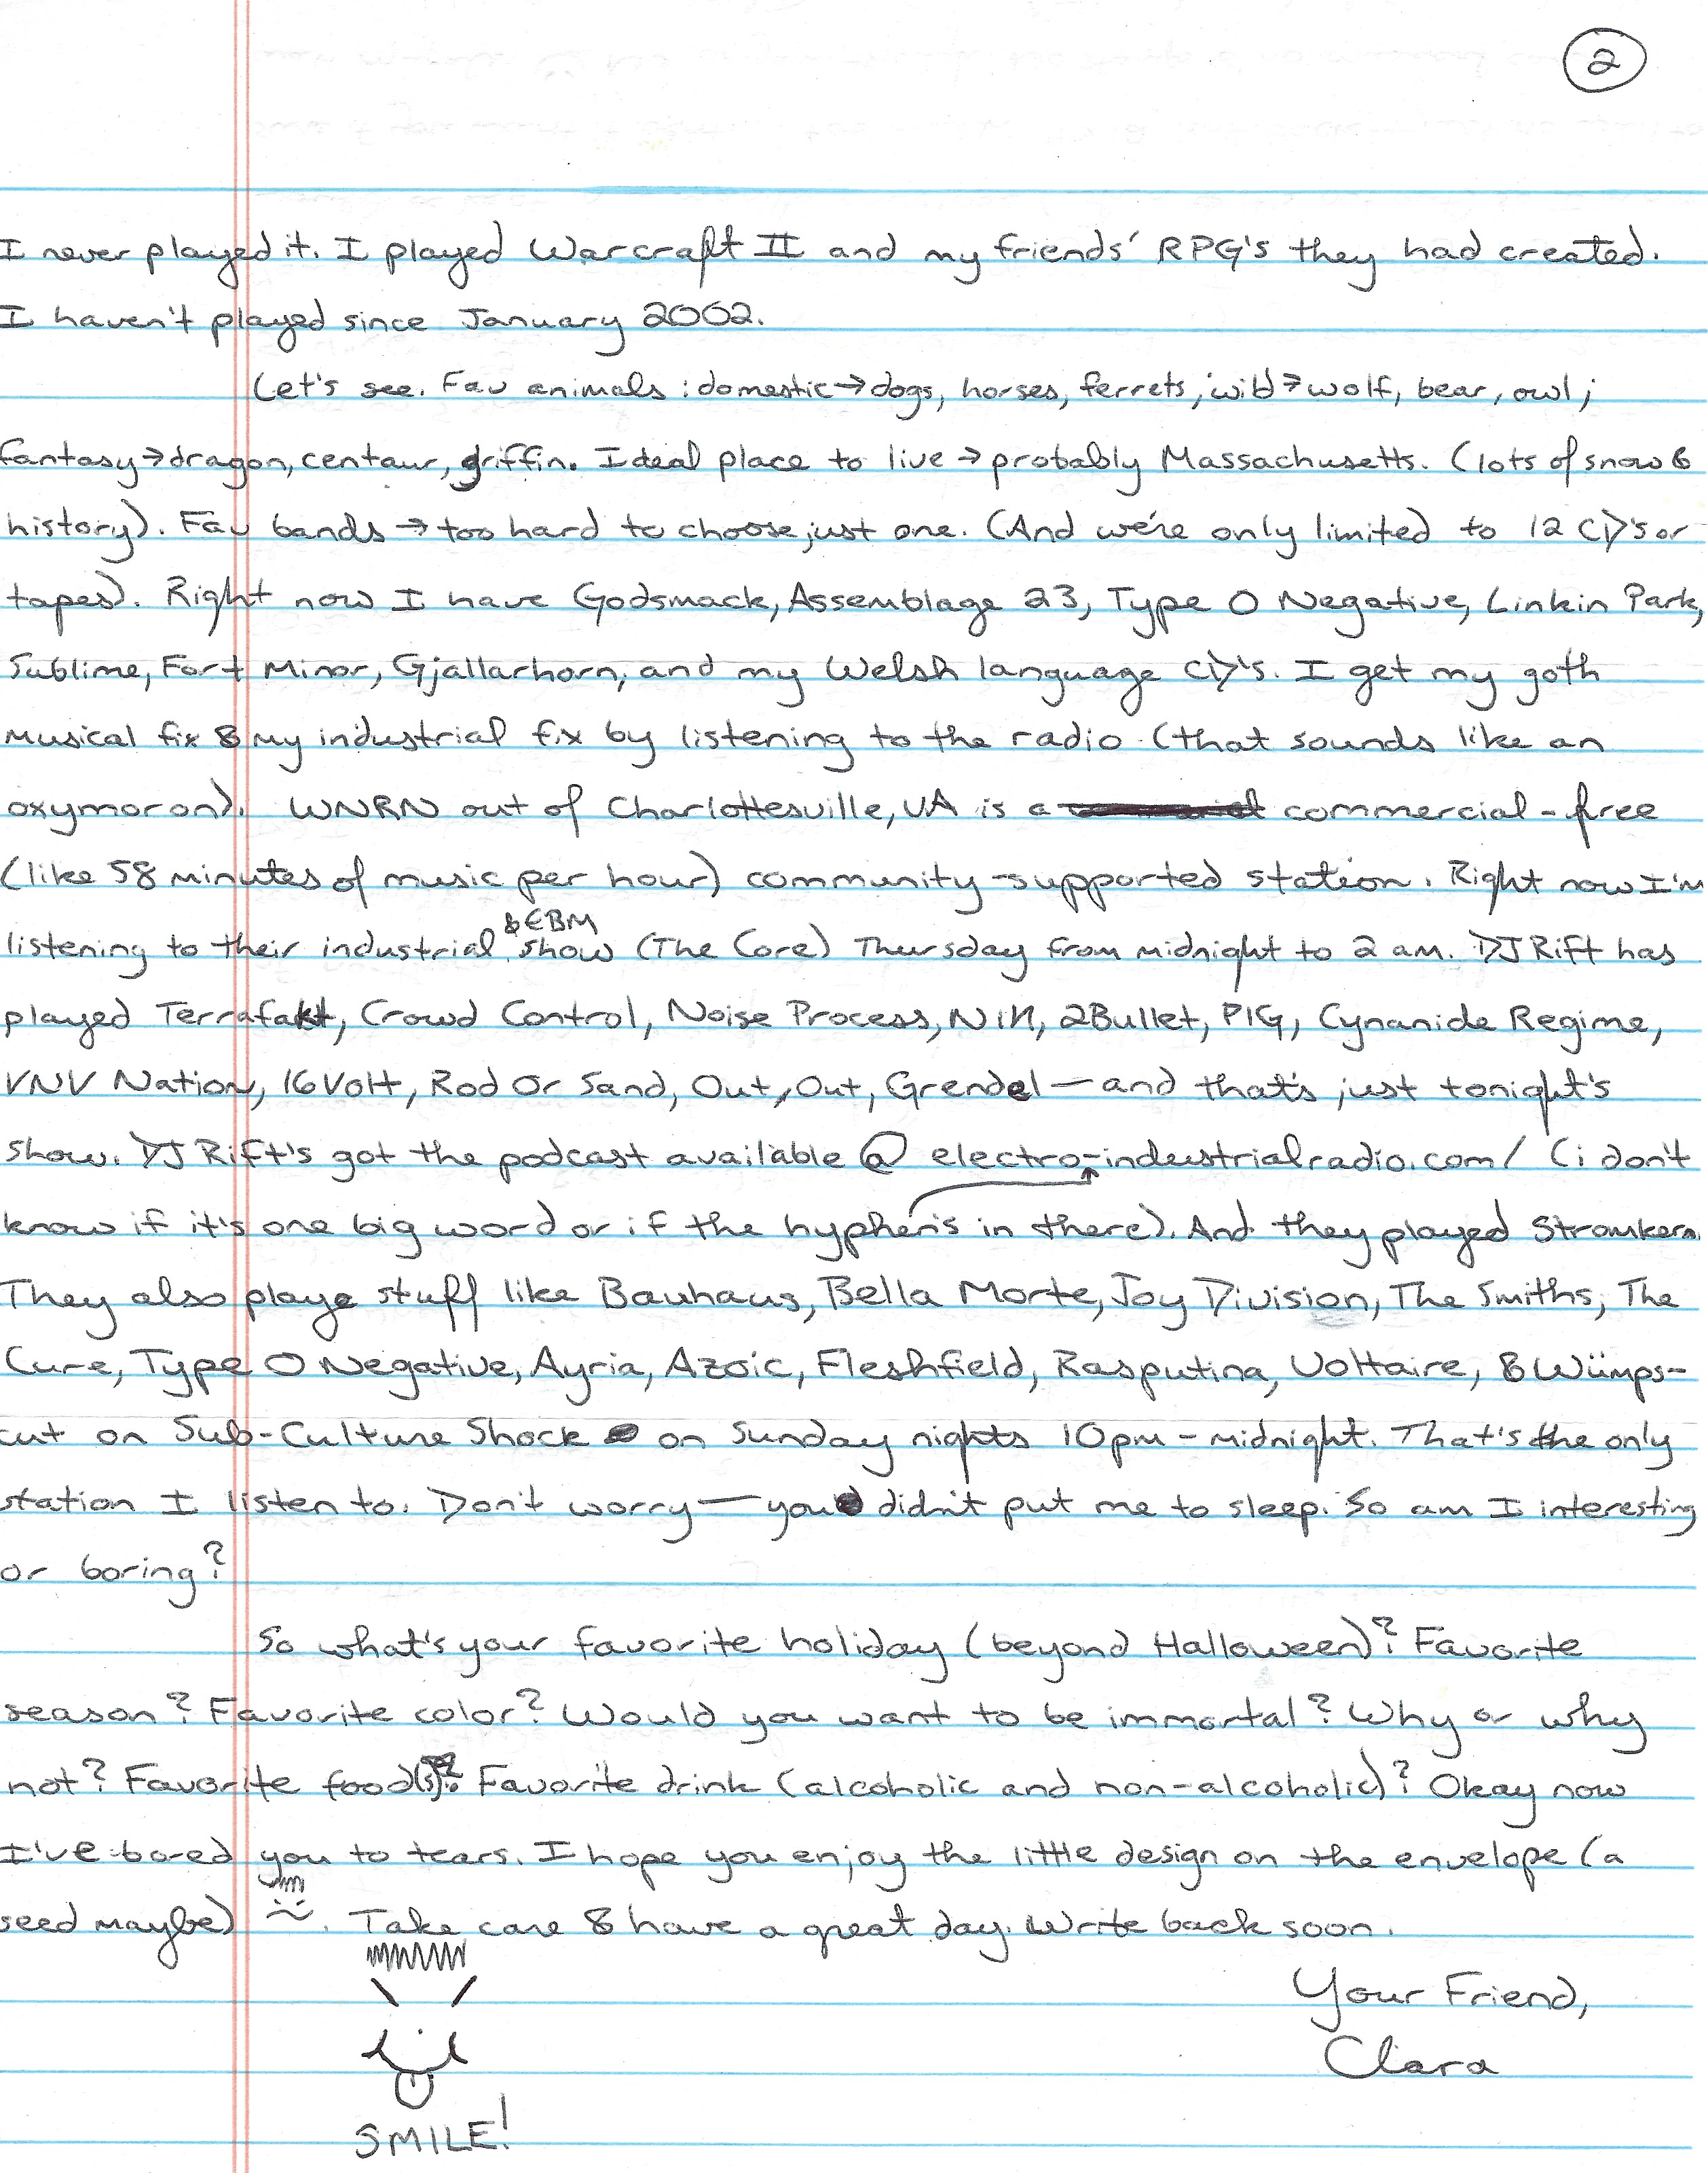 2
I never played it. I played Warcraft II and my friends' RPG's they had created.
I haven't played since January 2002.
Let's see. Fav animals : domestic → dogs, horses, ferrets ; wild → wolf, bear, owl ;
fantasy → dragon, centaur, griffin. Ideal place to live → probably Massachusetts. (lots of snow &
history). Fav bands → too hard to choose just one. (And we're only limited to 12 CD's or
tapes). Right now I have Godsmack, Assemblage 23, Type O Negative, Linkin Park,
Sublime, Fort Minor, Gjallarhorn, and my Welsh language CD's. I get my goth
musical fix & my industrial fix by listening to the radio (that sounds like an
oxymoron). WNRN out of Charlottesville, VA is a commercial-free
(like 58 minutes of music per hour) community-supported station. Right now I'm
listening to their industrial & EBM show (The Core) Thursday from midnight to 2 am. DJ Rift has
played Terrafakt, Crowd Control, Noise Process, NIN, 2Bullet, PIG, Cynanide Regime,
VNV Nation, 16 Volt, Rod Or Sand, Out, Out, Grendel — and that's just tonight's
show. DJ Rift's got the podcast available @ electro-industrialradio.com/ (i don't
know if it's one big word or if the hyphen's in there). And they played Stromkern.
They also playe stuff like Bauhaus, Bella Morte, Joy Division, The Smiths, The
Cure, Type O Negative, Ayria, Azoic, Fleshfield, Rasputina, Voltaire, & Wümps-
cut on Sub-Culture Shock on Sunday nights 10pm - midnight. That's the only
station I listen to. Don't worry — you didn't put me to sleep. So am I interesting
or boring?
So what's your favorite holiday (beyond Halloween)? Favorite
season? Favorite color? Would you want to be immortal? Why or why
not? Favorite food(s)? Favorite drink (alcoholic and non-alcoholic)? Okay now
I've bored you to tears. I hope you enjoy the little design on the envelope (a
seed maybe) . Take care & have a great day. Write back soon.
Your Friend,
Clara
SMILE!